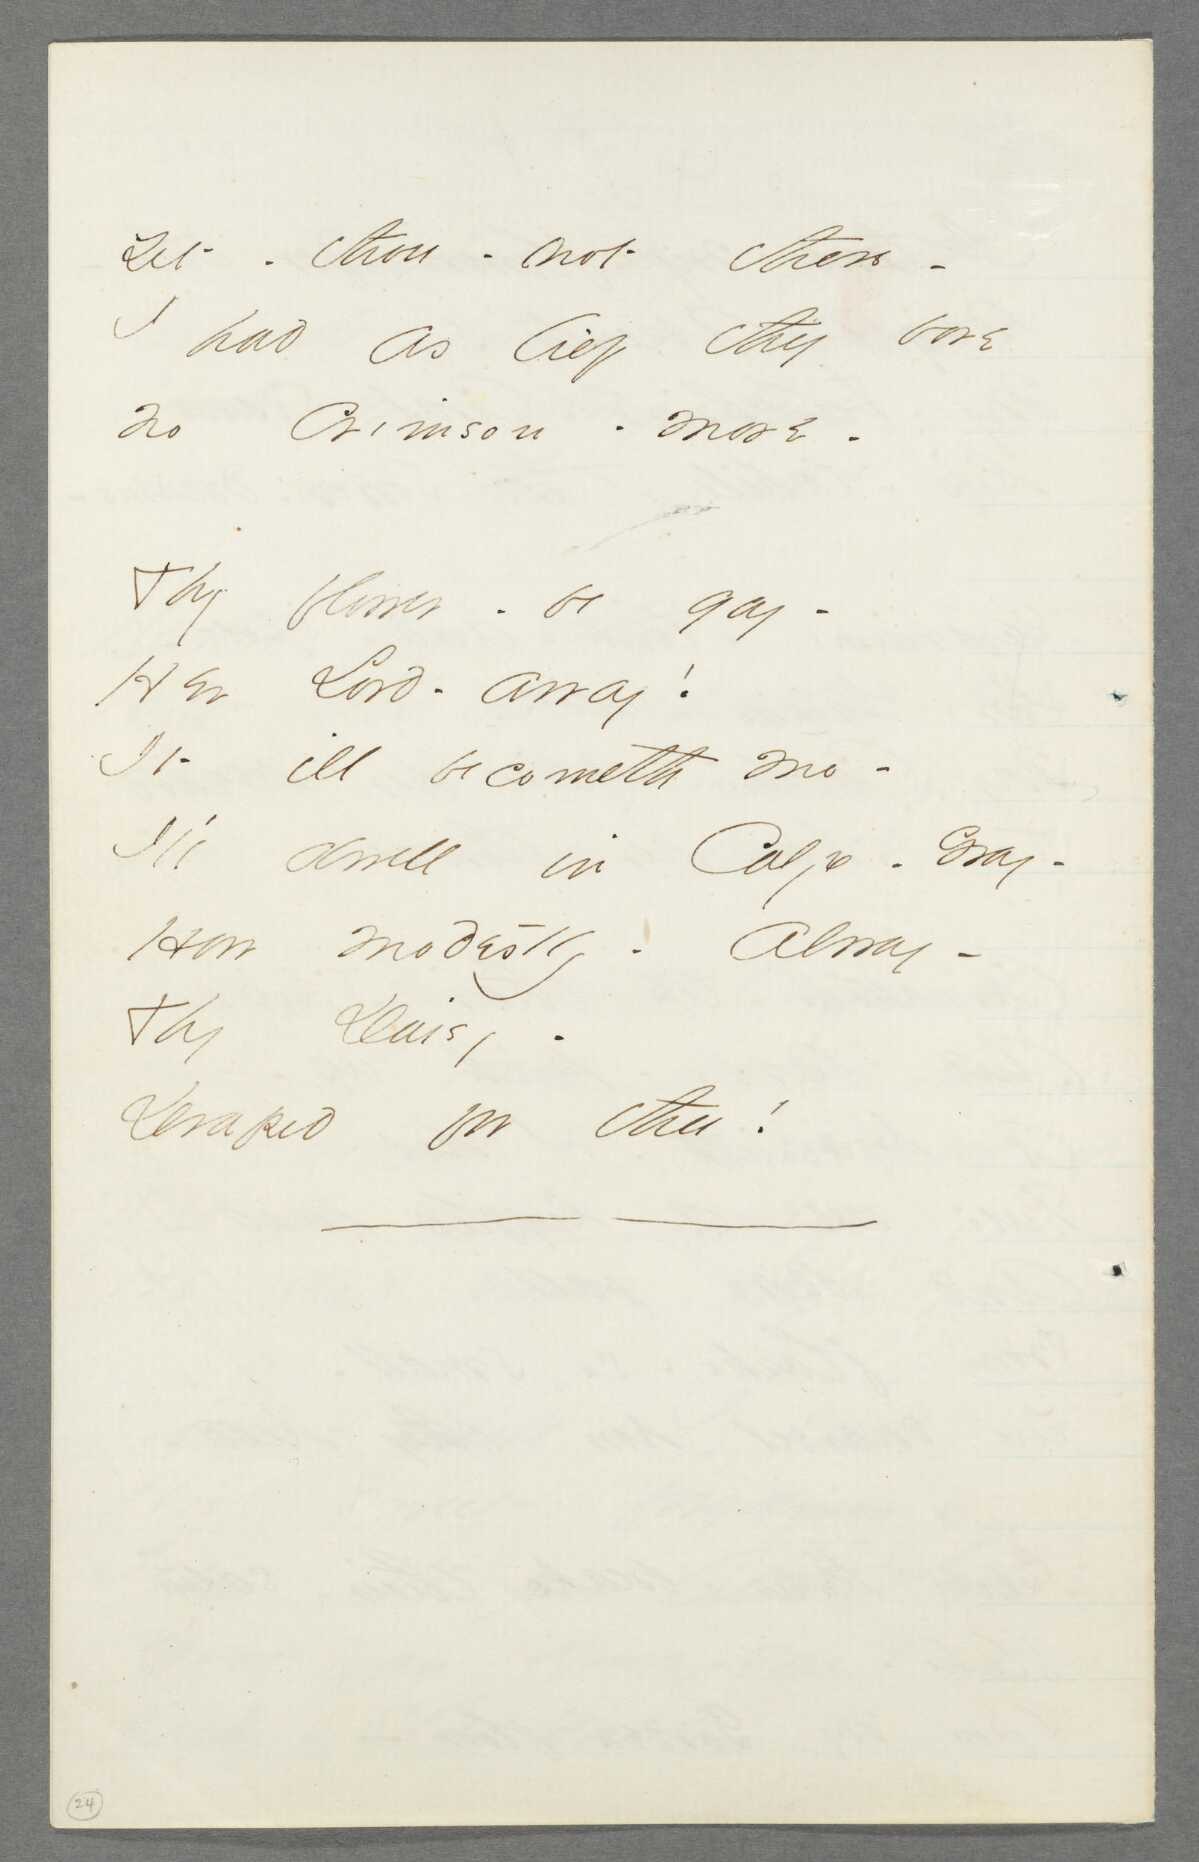 Yet - thou - not there -
I had as lief they bore
No Crimson - more -
Thy flower - be gay -
Her Lord - away!
It ill becometh me -
I'll dwell in Calyx - Gray -
How modestly - alway -
Thy Daisy -
Draped for thee!
24